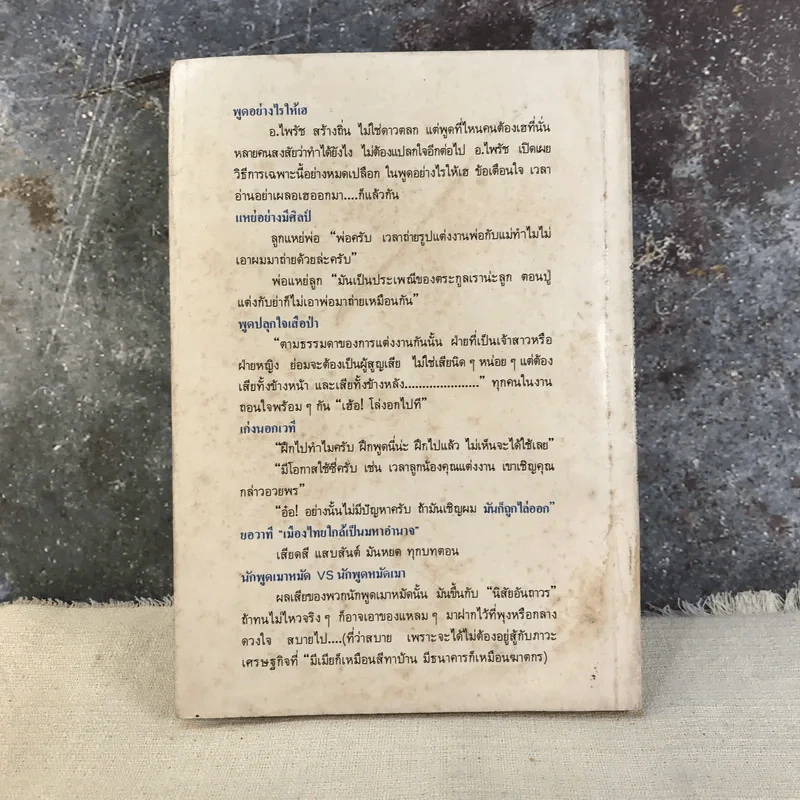 พูดอย่างไรให้เฮ
อ.ไพรัช สร้างถิ่น ไม่ใช่ดาวตลก แต่พูดที่ไหนคนต้องเฮที่นั่น
หลายคนสงสัยว่าทำได้ยังไง ไม่ต้องแปลกใจอีกต่อไป อ.ไพรัช เปิดเผย
วิธีการเฉพาะนี้อย่างหมดเปลือก ในพูดอย่างไรให้เฮ ข้อเตือนใจ เวลา
อ่านอย่าเผลอเฮออกมา....ก็แล้วกัน
แหย่อย่างมีศิลป์
ลูกแหย่พ่อ “พ่อครับ เวลาถ่ายรูปแต่งงานพ่อกับแม่ทำไมไม่
เอาผมมาถ่ายด้วยล่ะครับ”
พ่อแหย่ลูก “มันเป็นประเพณีของตระกูลเราน่ะลูก ตอนปู่
แต่งกับย่าก็ไม่เอาพ่อมาถ่ายเหมือนกัน”
พูดปลุกใจเสือป่า
“ตามธรรมดาของการแต่งงานกันนั้น ฝ่ายที่เป็นเจ้าสาวหรือ
ฝ่ายหญิง ย่อมจะต้องเป็นผู้สูญเสีย ไม่ใช่เสียนิด ๆ หน่อย ๆ แต่ต้อง
เสียทั้งข้างหน้า และเสียทั้งข้างหลัง.....................” ทุกคนในงาน
ถอนใจพร้อม ๆ กัน “เฮ้อ! โล่งอกไปที”
เก่งนอกเวที
“ฝึกไปทำไมครับ ฝึกพูดนี่น่ะ ฝึกไปแล้ว ไม่เห็นจะได้ใช้เลย”
“มีโอกาสใช้ซี่ครับ เช่น เวลาลูกน้องคุณแต่งงาน เขาเชิญคุณ
กล่าวอวยพร”
“อ๋อ! อย่างนั้นไม่มีปัญหาครับ ถ้ามันเชิญผม มันก็ถูกไล่ออก”
ยอวาที “เมืองไทยใกล้เป็นมหาอำนาจ”
เสียดสี แสบสันต์ มันหยด ทุกบทตอน
นักพูดเมาหมัด VS นักพูดหมัดเมา
ผลเสียของพวกนักพูดเมาหมัดนั้น มันขึ้นกับ “นิสัยอันถาวร”
ถ้าทนไม่ไหวจริง ๆ ก็อาจเอาของแหลม ๆ มาฝากไว้ที่พุงหรือกลาง
ดวงใจ สบายไป....(ที่ว่าสบาย เพราะจะได้ไม่ต้องอยู่สู้กับภาวะ
เศรษฐกิจที่ “มีเมียก็เหมือนสีทาบ้าน มีธนาคารก็เหมือนฆาตกร)